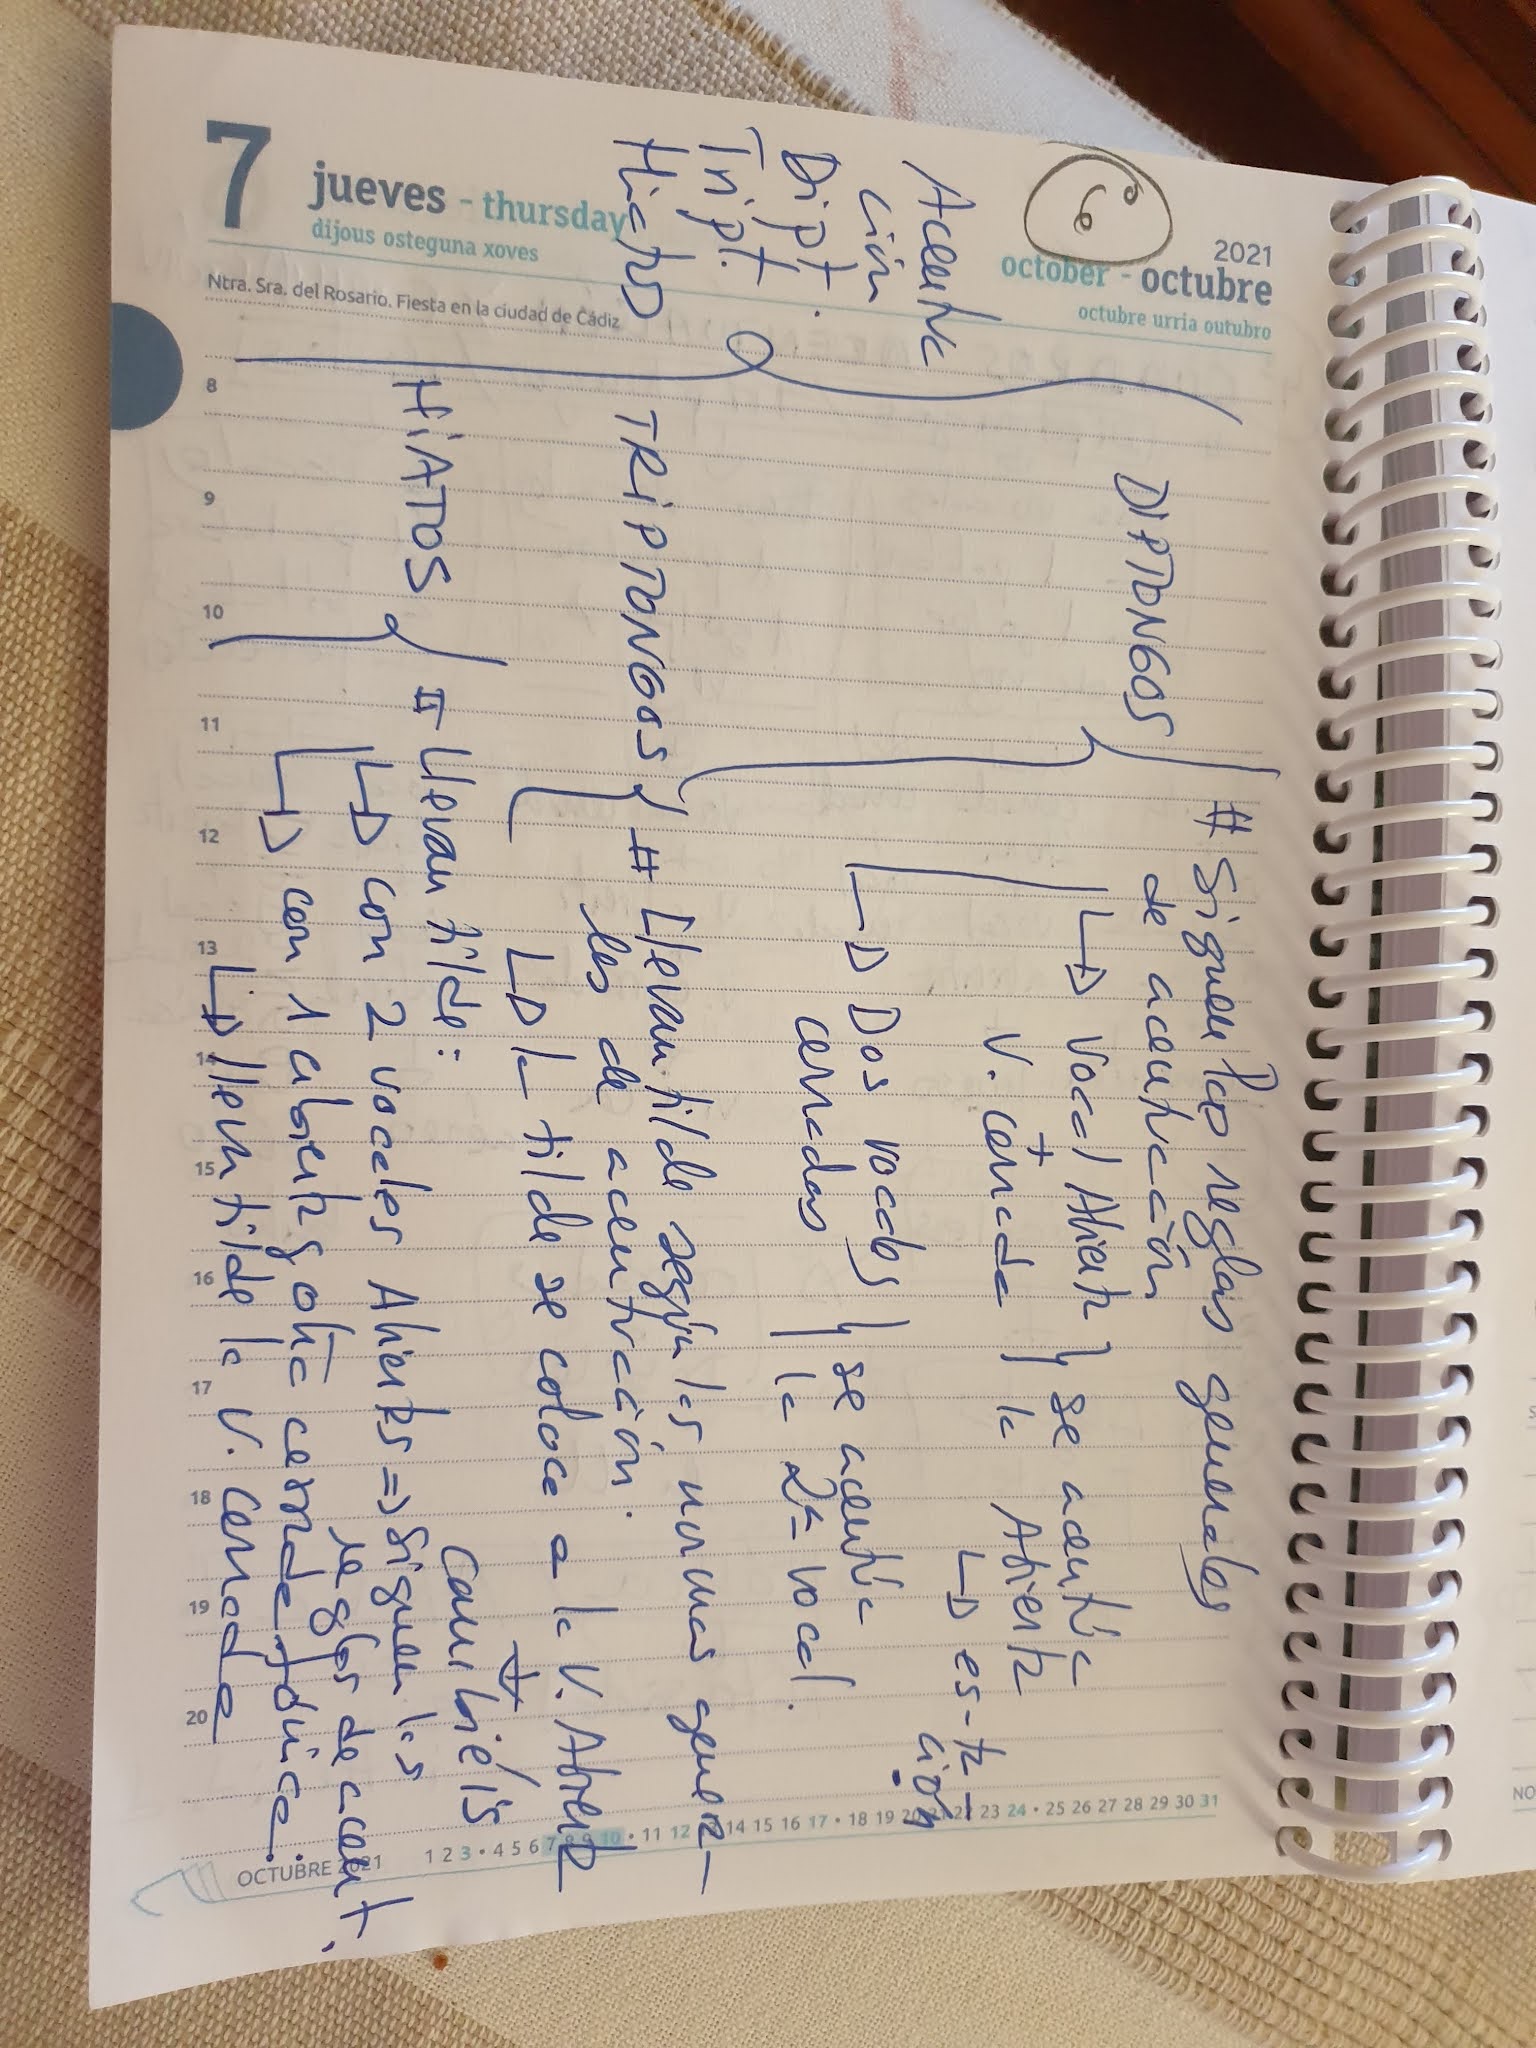 7
jueves - thursday
dijous osteguna xoves
Ntra. Sra. del Rosario. Fiesta en la ciudad de Cádiz
2021
october - octubre
octubre urria outubro
6
Acentua
ción
Dipt.
Tript.
Hiato
DIPTONGOS
# Siguen las reglas generales
de acentuación
Vocal Abierta } se acentúa
+
V. Cerrada } la Abierta
es-ta-
ción
Dos vocales } se acentúa
cerradas } la 2ª vocal.
TRIPTONGOS
# Llevan tilde según las normas genera-
les de acentuación.
La tilde se coloca a la V. Abierta
Cambiéis
HIATOS
# Llevan tilde:
con 2 vocales Abiertas => Siguen las
reglas de acent.
con 1 abierta y otra cerrada tónica.
lleva tilde la V. cerrada
8
9
10
11
12
13
14
15
16
17
18
19
20
OCTUBRE 2021
1 2 3 • 4 5 6 7 8 9 10 • 11 12 14 15 16 17 • 18 19 20 21 22 23 24 • 25 26 27 28 29 30 31
NO